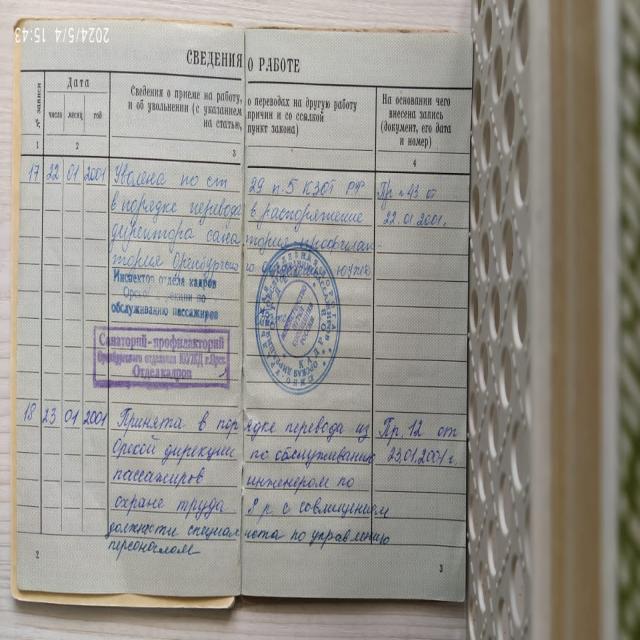 2024/5/4 15:43
СВЕДЕНИЯ О РАБОТЕ
№ записи
Дата
число месяц год
Сведения о приеме на работу, о переводах на другую работу
и об увольнении (с указанием причин и со ссылкой
на статью, пункт закона)
На основании чего
внесена запись
(документ, его дата
и номер)
1 2 3 4
17 22 01 2001 Уволена по ст 29 п.5 КЗОТ РФ Пр н43 от
в порядке перевода в распоряжение 22.01.2001.
директора санатория профилак-
тория Оренбургского отделения ЮУЖД
Инспектор отдела кадров
обслуживанию пассажиров
Санаторий-профилакторий
Оренбургского отделения ЮУЖД г.Орск
Отдел кадров
18 23 01 2001 Принята в порядке перевода из Пр. 12 от
Орской дирекции по обслуживанию 23.01.2001 г.
пассажиров инженером по
охране труда 9 р с совмещением
должности специалиста по управлению
персоналом
2 3